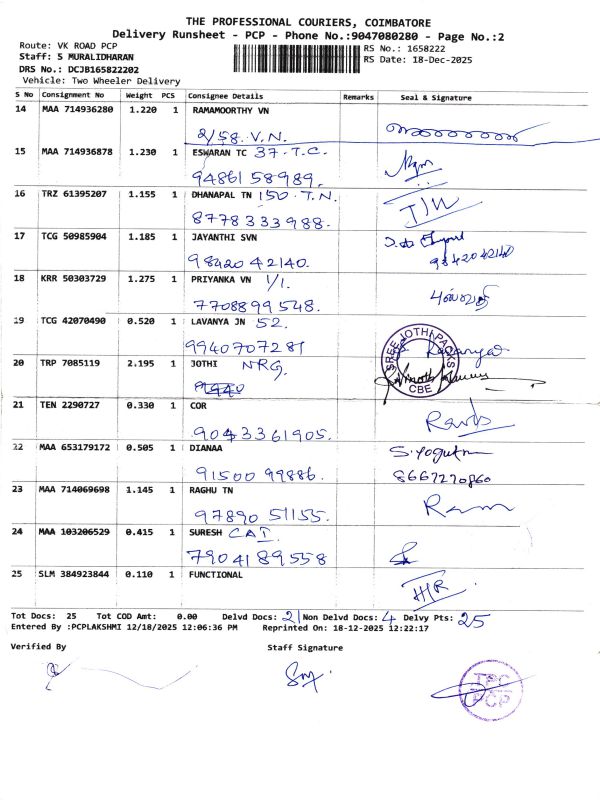 THE PROFESSIONAL COURIERS, COIMBATORE
Delivery Runsheet - PCP - Phone No.:9047080280 - Page No.:2
Route: VK ROAD PCP
RS No.: 1658222
Staff: S MURALIDHARAN
RS Date: 18-Dec-2025
DRS No.: DCJB165822202
Vehicle: Two Wheeler Delivery
S No Consignment No Weight PCS Consignee Details Remarks Seal & Signature
14 MAA 714936280 1.220 1 RAMAMOORTHY VN
2/58. V.N.
15 MAA 714936878 1.230 1 ESWARAN TC 37. T.C.
94861 58989.
16 TRZ 61395207 1.155 1 DHANAPAL TN 150. T.N.
8778 333 988.
17 TCG 50985904 1.185 1 JAYANTHI SVN
98420 42140. 9842042140
18 KRR 50303729 1.275 1 PRIYANKA VN 1/1.
7708899548.
19 TCG 42070490 0.520 1 LAVANYA JN 52.
9940707281
20 TRP 7085119 2.195 1 JOTHI NRG.
SREE JOTHI PACKS
CBE
21 TEN 2290727 0.330 1 COR
90433 61905.
22 MAA 653179172 0.505 1 DIANAA
91500 99886. 8667270860
23 MAA 714069698 1.145 1 RAGHU TN
97890 51155. Ram
24 MAA 103206529 0.415 1 SURESH CAI
79041 89558
25 SLM 384923844 0.110 1 FUNCTIONAL
Tot Docs: 25 Tot COD Amt: 0.00 Delvd Docs: 21 Non Delvd Docs: 4 Delvy Pts: 25
Entered By :PCPLAKSHMI 12/18/2025 12:06:36 PM Reprinted On: 18-12-2025 12:22:17
Verified By Staff Signature
TPC
PCP